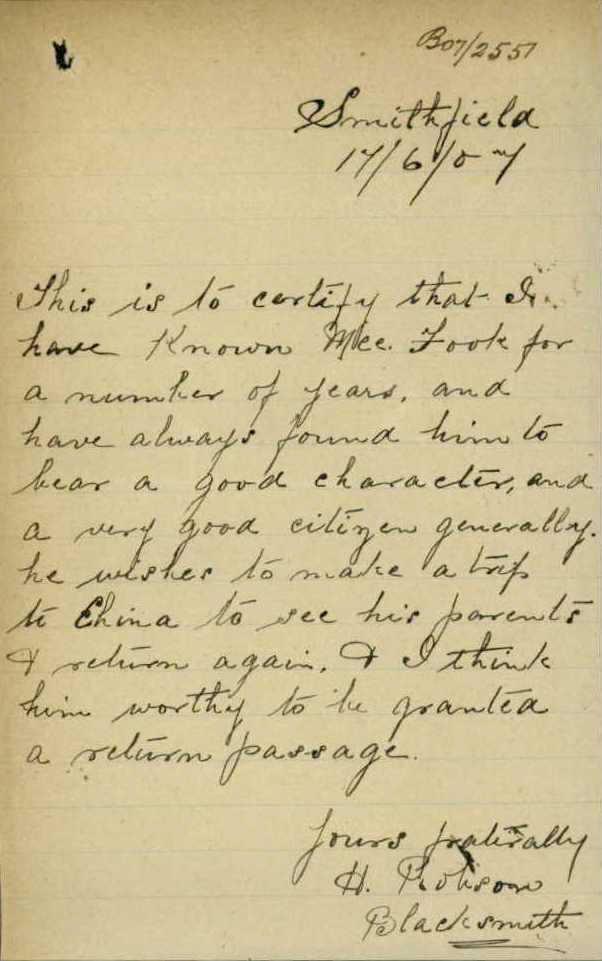 B07/2551
Smithfield
17/6/07
This is to certify that I
have Known Mee. Fook for
a number of years, and
have always found him to
bear a good character, and
a very good citizen generally.
he wishes to make a trip
to China to see his parents
& return again, & I think
him worthy to be granted
a return passage.
Yours fratirally
H. Robson
Blacksmith